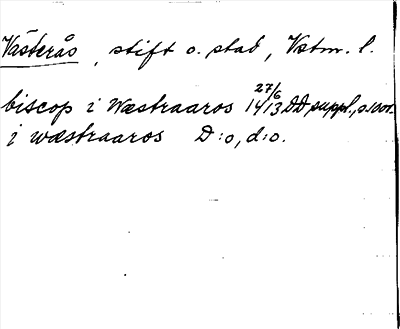 Västerås, stift o. stad, Vstm. l.
biscop i Wæstraaros 27/6 1413 DD suppl.,
i wæstraaros D:o, d:o.